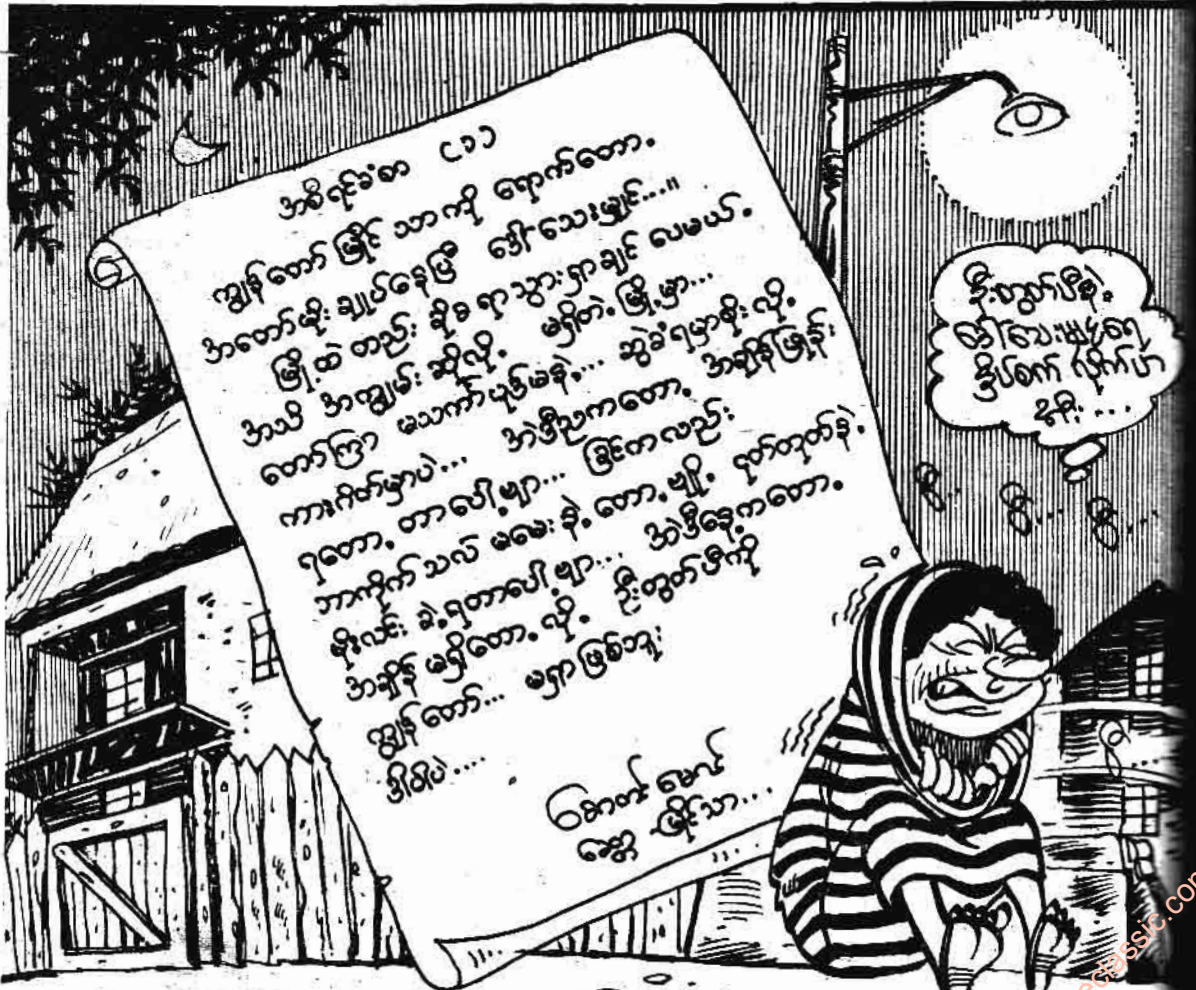 အစီရင်ခံစာ ၎၁၁
ကျွန်တော် မြိုင် သာကို ရောက်တော့
အတော်မိုးချုပ်နေပြီ ဒေါ်သေးမျှင်..."
မြို့ထဲ တည်း ခိုခ ရာသွားရှာချင် ပေမယ့်
အသိ အကျွမ်း ဆိုလို့ မရှိတဲ့ မြို့မှာ...
တော်ကြာ မသင်္ကာပုဒ်မနဲ့... ဆွဲခံရမှာစိုးလို့
ကားဂိတ်မှာပဲ... အဲဒီညကတော့ အချိန်ဖြုန်း
ရတော့ တာပေါ့ဗျာ... ခြင်ကလည်း
ဘာကိုက်သလဲ မမေးနဲ့တော့ဗျို့ ငုတ်တုတ်နဲ့
မိုးလင်း ခဲ့ရတာပေါ့ဗျာ... အဲဒီနေ့ကတော့
အချိန် မရှိတော့ လို့ ဦးတွတ်ပီကို
ကျွန်တော်... မရှာဖြစ်ဘူး
ဒါပါပဲ....
မြိုင်သာ...
ဦးတွတ်ပီနဲ့
ဒေါ်သေးမျှင်ရေ
နှိပ်စက် လိုက်ပုံ
ခွီး...